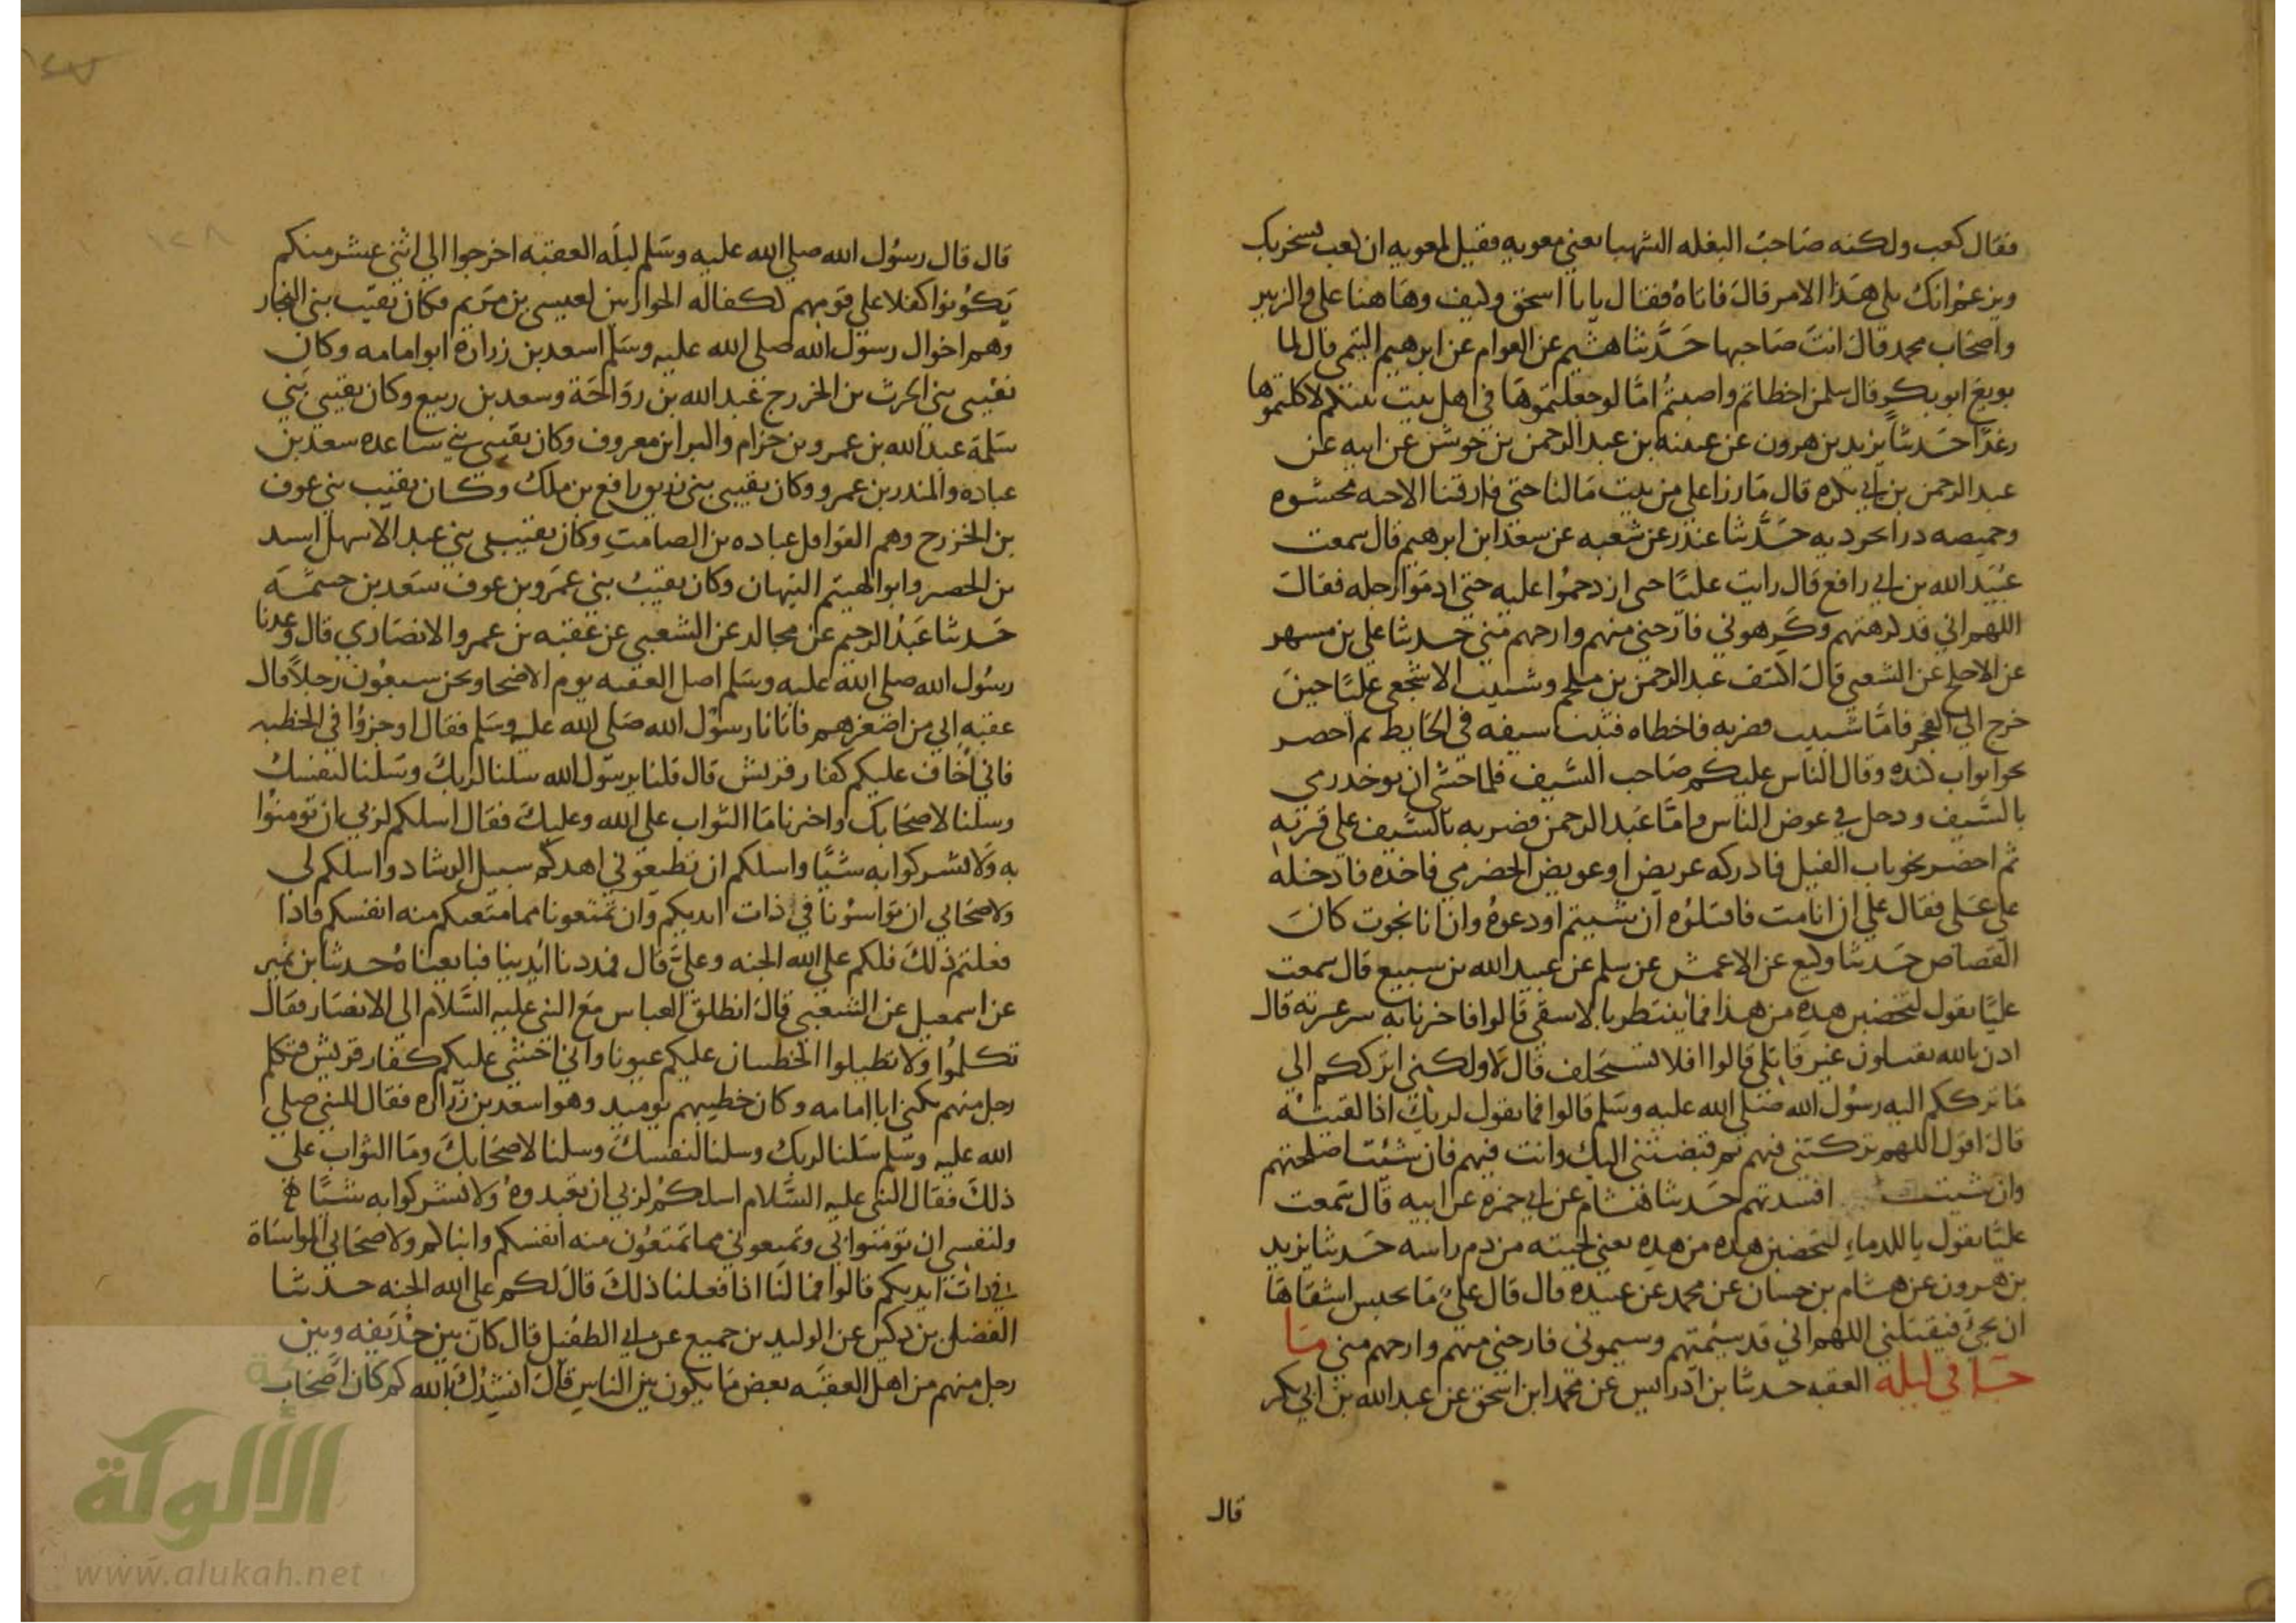 فقال كعب ولكنه صاحب البغله الشهبا يعني معويه فقيل لمعويه ان كعب يسخر بك
ويزعم انك تلي هذا الامر قال فاتاه فقال يابا اسحق وكيف وهاهنا علي والزبير
واصحاب محمد قال انت صاحبها حدثنا هشيم عن العوام عن ابرهيم التيمي قال لما
بويع ابو بكر قال سلمن اخطاتم واصبتم اما لو جعلتموها في اهل بيت نبيكم لاكلتموها
رغدا حدثنا يزيد بن هرون عن عيينه بن عبد الرحمن بن جوشن عن ابيه عن
عبد الرحمن بن ابي بكره قال ما رزا علي من بيت مالنا حتى فارقنا الا جبه محشوه
وخميصه درابجرديه حدثنا غندر عن شعبه عن سعد ابن ابرهيم قال سمعت
عبيد الله بن ابي رافع قال رايت عليا حين ازدحموا عليه حتى ادموا رجله فقال
اللهم اني قد كرهتهم وكرهوني فارحني منهم وارحهم مني حدثنا علي بن مسهر
عن الاجلح عن الشعبي قال اكتنف عبد الرحمن بن ملجم وشبيب الاشجعي عليا حين
خرج الي الفجر فاما شبيب فضربه فاخطاه فثبت سيفه في الحايط ثم احصر
نحو ابواب كنده وقال الناس عليكم صاحب السيف فلما خشي ان يوخذ رمي
بالسيف ودخل في عرض الناس واما عبد الرحمن فضربه بالسيف علي قرنه
ثم احضر نحو باب الفيل فادركه عريض او عويض الحضرمي فاخذه فادخله
علي علي فقال علي ان انا مت فاقتلوه ان شيتم او دعوه وان انا نجوت كان
القصاص حدثنا وكيع عن الاعمش عن سلم عن عبيد الله بن سبيع قال سمعت
عليا يقول لتخضبن هذه من هذا فما ينتظر بالاشقى قالوا فاخبرنا به نبير عترته قال
اذن بالله تقتلون غير قاتلي قالوا افلا تستخلف قال لا ولكني اترككم الي
ما ترككم اليه رسول الله صلى الله عليه وسلم قالوا فما تقول لربك اذا لقيته
قال اقول اللهم تركتني فيهم ثم قبضتني اليك وانت فيهم فان شئت اصلحتهم
وان شيت افسدتهم حدثنا هشام عن ابي حمزه عن ابيه قال سمعت
عليا يقول ياللدماء لتخضبن هذه من هذه يعني لحيته من دم راسه حدثنا يزيد
بن هرون عن هشام بن حسان عن محمد عن عبيده قال قال علي ما يحبس اشقاها
ان يجئ فيقتلني اللهم اني قد سئمتهم وسيموني فارحني منهم وارحهم مني ما
جا في ليله العقبه حدثنا بن ادرايس عن محمد ابن اسحق عن عبد الله بن ابي بكر
قال
قال قال رسول الله صلى الله عليه وسلم ليله العقبه اخرجوا الي اثني عشر منكم
يكونوا كفلا علي قومهم ككفاله الحواريين لعيسى بن مريم فكان نقيب بني النجار
وهم اخوال رسول الله صلى الله عليه وسلم اسعد بن زراره ابو امامه وكان
نقيبي بني الحرث بن الخزرج عبد الله بن رواحة وسعد بن ربيع وكان نقيبي بني
سلمة عبد الله بن عمرو بن حرام والبرا بن معروف وكان نقيبي بني ساعده سعد بن
عباده والمنذر بن عمرو وكان نقيبي بني زريق رافع بن ملك وكان نقيب بني عوف
بن الخزرج وهم القوافل عباده بن الصامت وكان نقيبي بني عبد الاسهل اسيد
بن الحصير وابو الهيثم التيهان وكان نقيب بني عمرو بن عوف سعد بن خيثمة
حدثنا عبد الرحيم عن مجالد عن الشعبي عن عقبه بن عمرو الانصاري قال وعدنا
رسول الله صلى الله عليه وسلم اصل العقبه يوم الاضحا ونحن سبعون رجلا قال
عقبه اني من اصغرهم فاتانا رسول الله صلى الله عليه وسلم فقال اوجزوا في الخطبه
فاني اخاف عليكم كفار قريش قال قلنا يرسول الله سلنا لربك وسلنا لنفسك
وسلنا لاصحابك واخبرنا ما الثواب على الله وعليك فقال اسلكم لربي ان تومنوا
به ولا تشركوا به شيا واسلكم ان تطيعوني اهدكم سبيل الرشاد واسلكم لي
ولاصحابي ان تواسونا في ذات ايديكم وان تمنعونا مما منعتم منه انفسكم فاذا
فعلتم ذلك فلكم على الله الجنه وعلي قال فمددنا ايدينا فبايعناه حدثنا بن نمير
عن اسمعيل عن الشعبي قال انطلق العباس مع النبي عليه السلام الى الانصار فقال
تكلموا ولا تطيلوا الخطبه ان عليكم عيونا واني اخشى عليكم كفار قريش فتكلم
رجل منهم يكنى ابا امامه وكان خطيبهم يوميد وهو اسعد بن زراره فقال للنبي صلى
الله عليه وسلم سلنا لربك وسلنا لنفسك وسلنا لاصحابك وما الثواب علي
ذلك فقال النبي عليه السلام اسلكم لربي ان تعبدوه ولا تشركوا به شيا
ولنفسي ان تومنوا بي وتمنعوني مما تمنعون منه انفسكم وابناكم ولاصحابي المواساة
في ذات ايديكم قالوا فما لنا اذا فعلنا ذلك قال لكم على الله الجنه حدثنا
الفضل بن دكين عن الوليد بن جميع عن ابي الطفيل قال كان بين حذيفه وبين
رجل منهم من اهل العقبه بعض ما يكون بين الناس قال انشدك بالله كم كان اصحاب
الألوكة
www.alukah.net